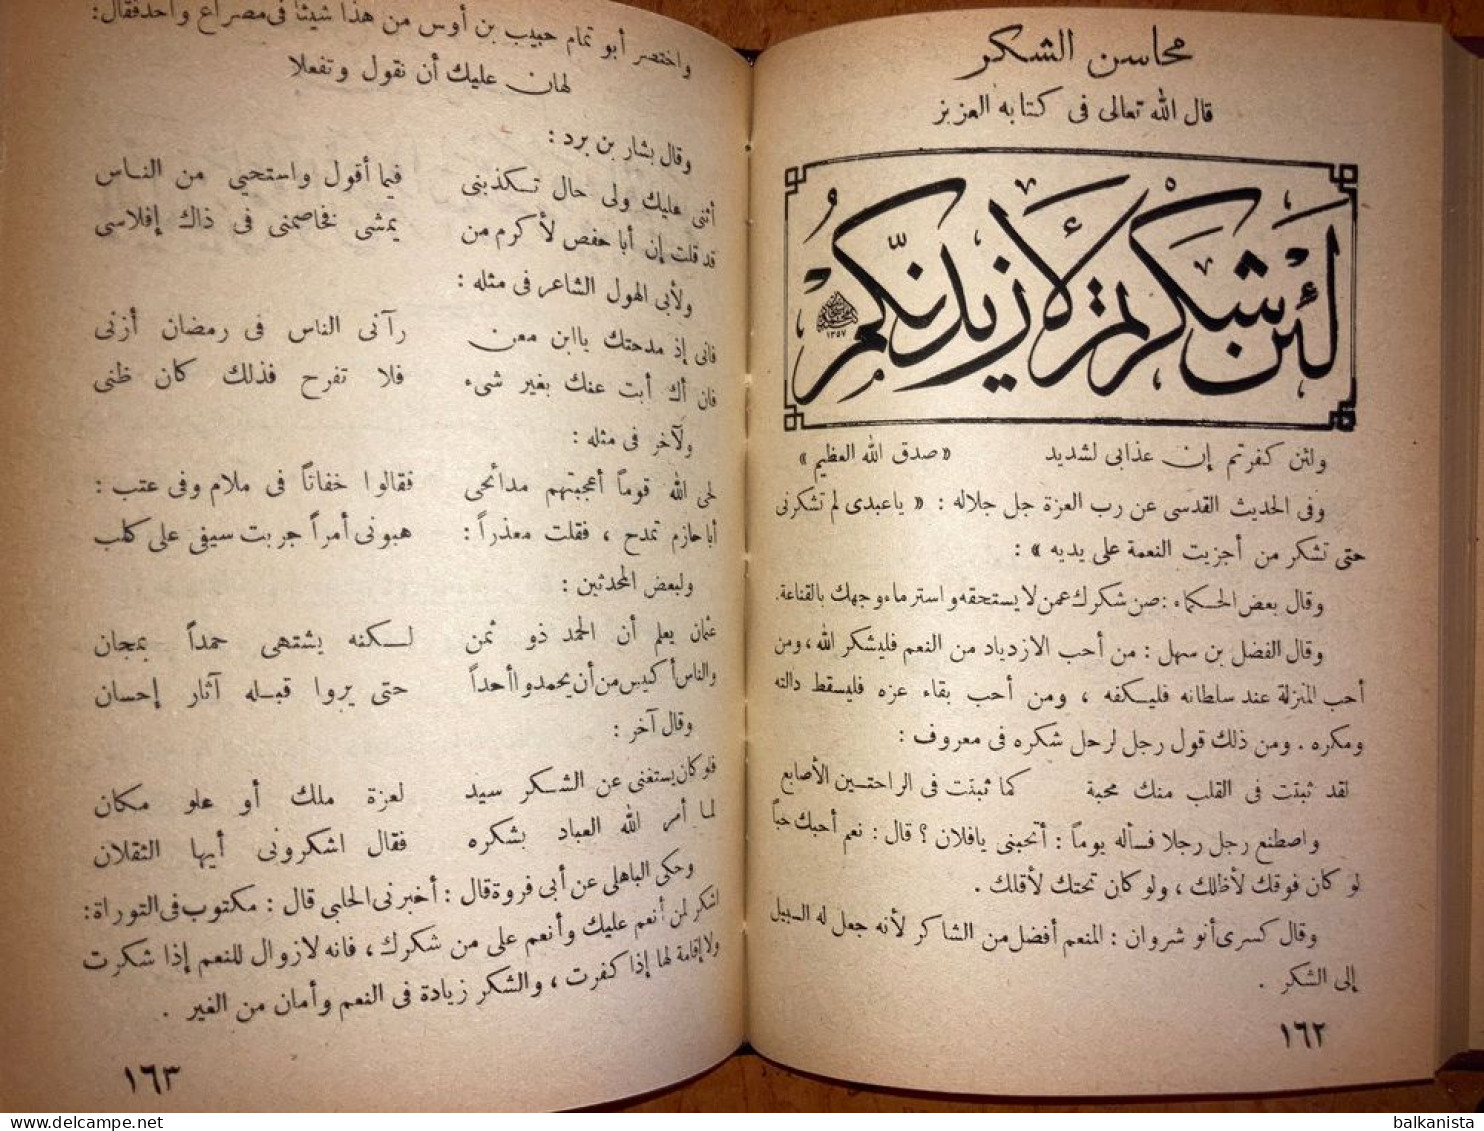 محاسن الشكر
قال الله تعالى فى كتابه العزيز
لَئِنْ شَكَرْتُمْ لَأَزِيدَنَّكُمْ
١٣٥٧
ولئن كفرتم إن عذابى لشديد « صدق الله العظيم »
وفى الحديث القدسى عن رب العزة جل جلاله : « ياعبدى لم تشكرنى
حتى تشكر من أجزيت النعمة على يديه » :
وقال بعض الحكماء : صن شكرك عمن لا يستحقه واستر ماء وجهك بالقناعة .
وقال الفضل بن سهل : من أحب الازدياد من النعم فليشكر الله ، ومن
أحب المنزلة عند سلطانه فليكفه ، ومن أحب بقاء عزه فليسقط دالته
ومكره . ومن ذلك قول رجل لرجل شكره فى معروف :
لقد ثبتت فى القلب منك محبة كما ثبتت فى الراحتين الأصابع
واصطنع رجل رجلا فسأله يوماً : أتحبنى يافلان ؟ قال : نعم أحبك حباً
لو كان فوقك لأظلك ، ولو كان تحتك لأقلك .
وقال كسرى أنو شروان : المنعم أفضل من الشاكر لأنه جعل له السبيل
إلى الشكر .
١٦٢
واختصر أبو تمام حبيب بن أوس من هذا شيئاً فى مصراع واحد فقال :
لهان عليك أن نقول وتفعلا
وقال بشار بن برد :
أثنى عليك ولى حال تكذبنى فيما أقول واستحيى من الناس
قد قلت إن أبا حفص لأكرم من يمشى فخاصمنى فى ذاك إفلاسى
ولأبى الهول الشاعر فى مثله :
فانى إذ مدحتك ياابن معن رآنى الناس فى رمضان أزنى
فان أك أبت عنك بغير شىء فلا تفرح فذلك كان ظنى
ولآخر فى مثله :
لحى الله قوماً أعجبتهم مدائحى فقالوا خفاتاً فى ملام وفى عتب :
أبا حازم تمدح ، فقلت معذراً : هبونى أمرأ جربت سيفى على كلب
ولبعض المحدثين :
عثمان يعلم أن الحمد ذو ثمن لكنه يشتهى حمداً بمجان
والناس أكيس من أن يحمدوا أحداً حتى يروا قبله آثار إحسان
وقال آخر :
فلو كان يستغنى عن الشكر سيد لعزة ملك أو علو مكان
لما أمر الله العباد بشكره فقال اشكرونى أيها الثقلان
وحكى الباهلى عن أبى فروة قال : أخبرنى الحلبى قال : مكتوب فى التوراة :
اشكر لمن أنعم عليك وأنعم على من شكرك ، فانه لا زوال للنعم إذا شكرت
ولا إقامة لها إذا كفرت ، والشكر زيادة فى النعم وأمان من الغير .
١٦٣
balkanista